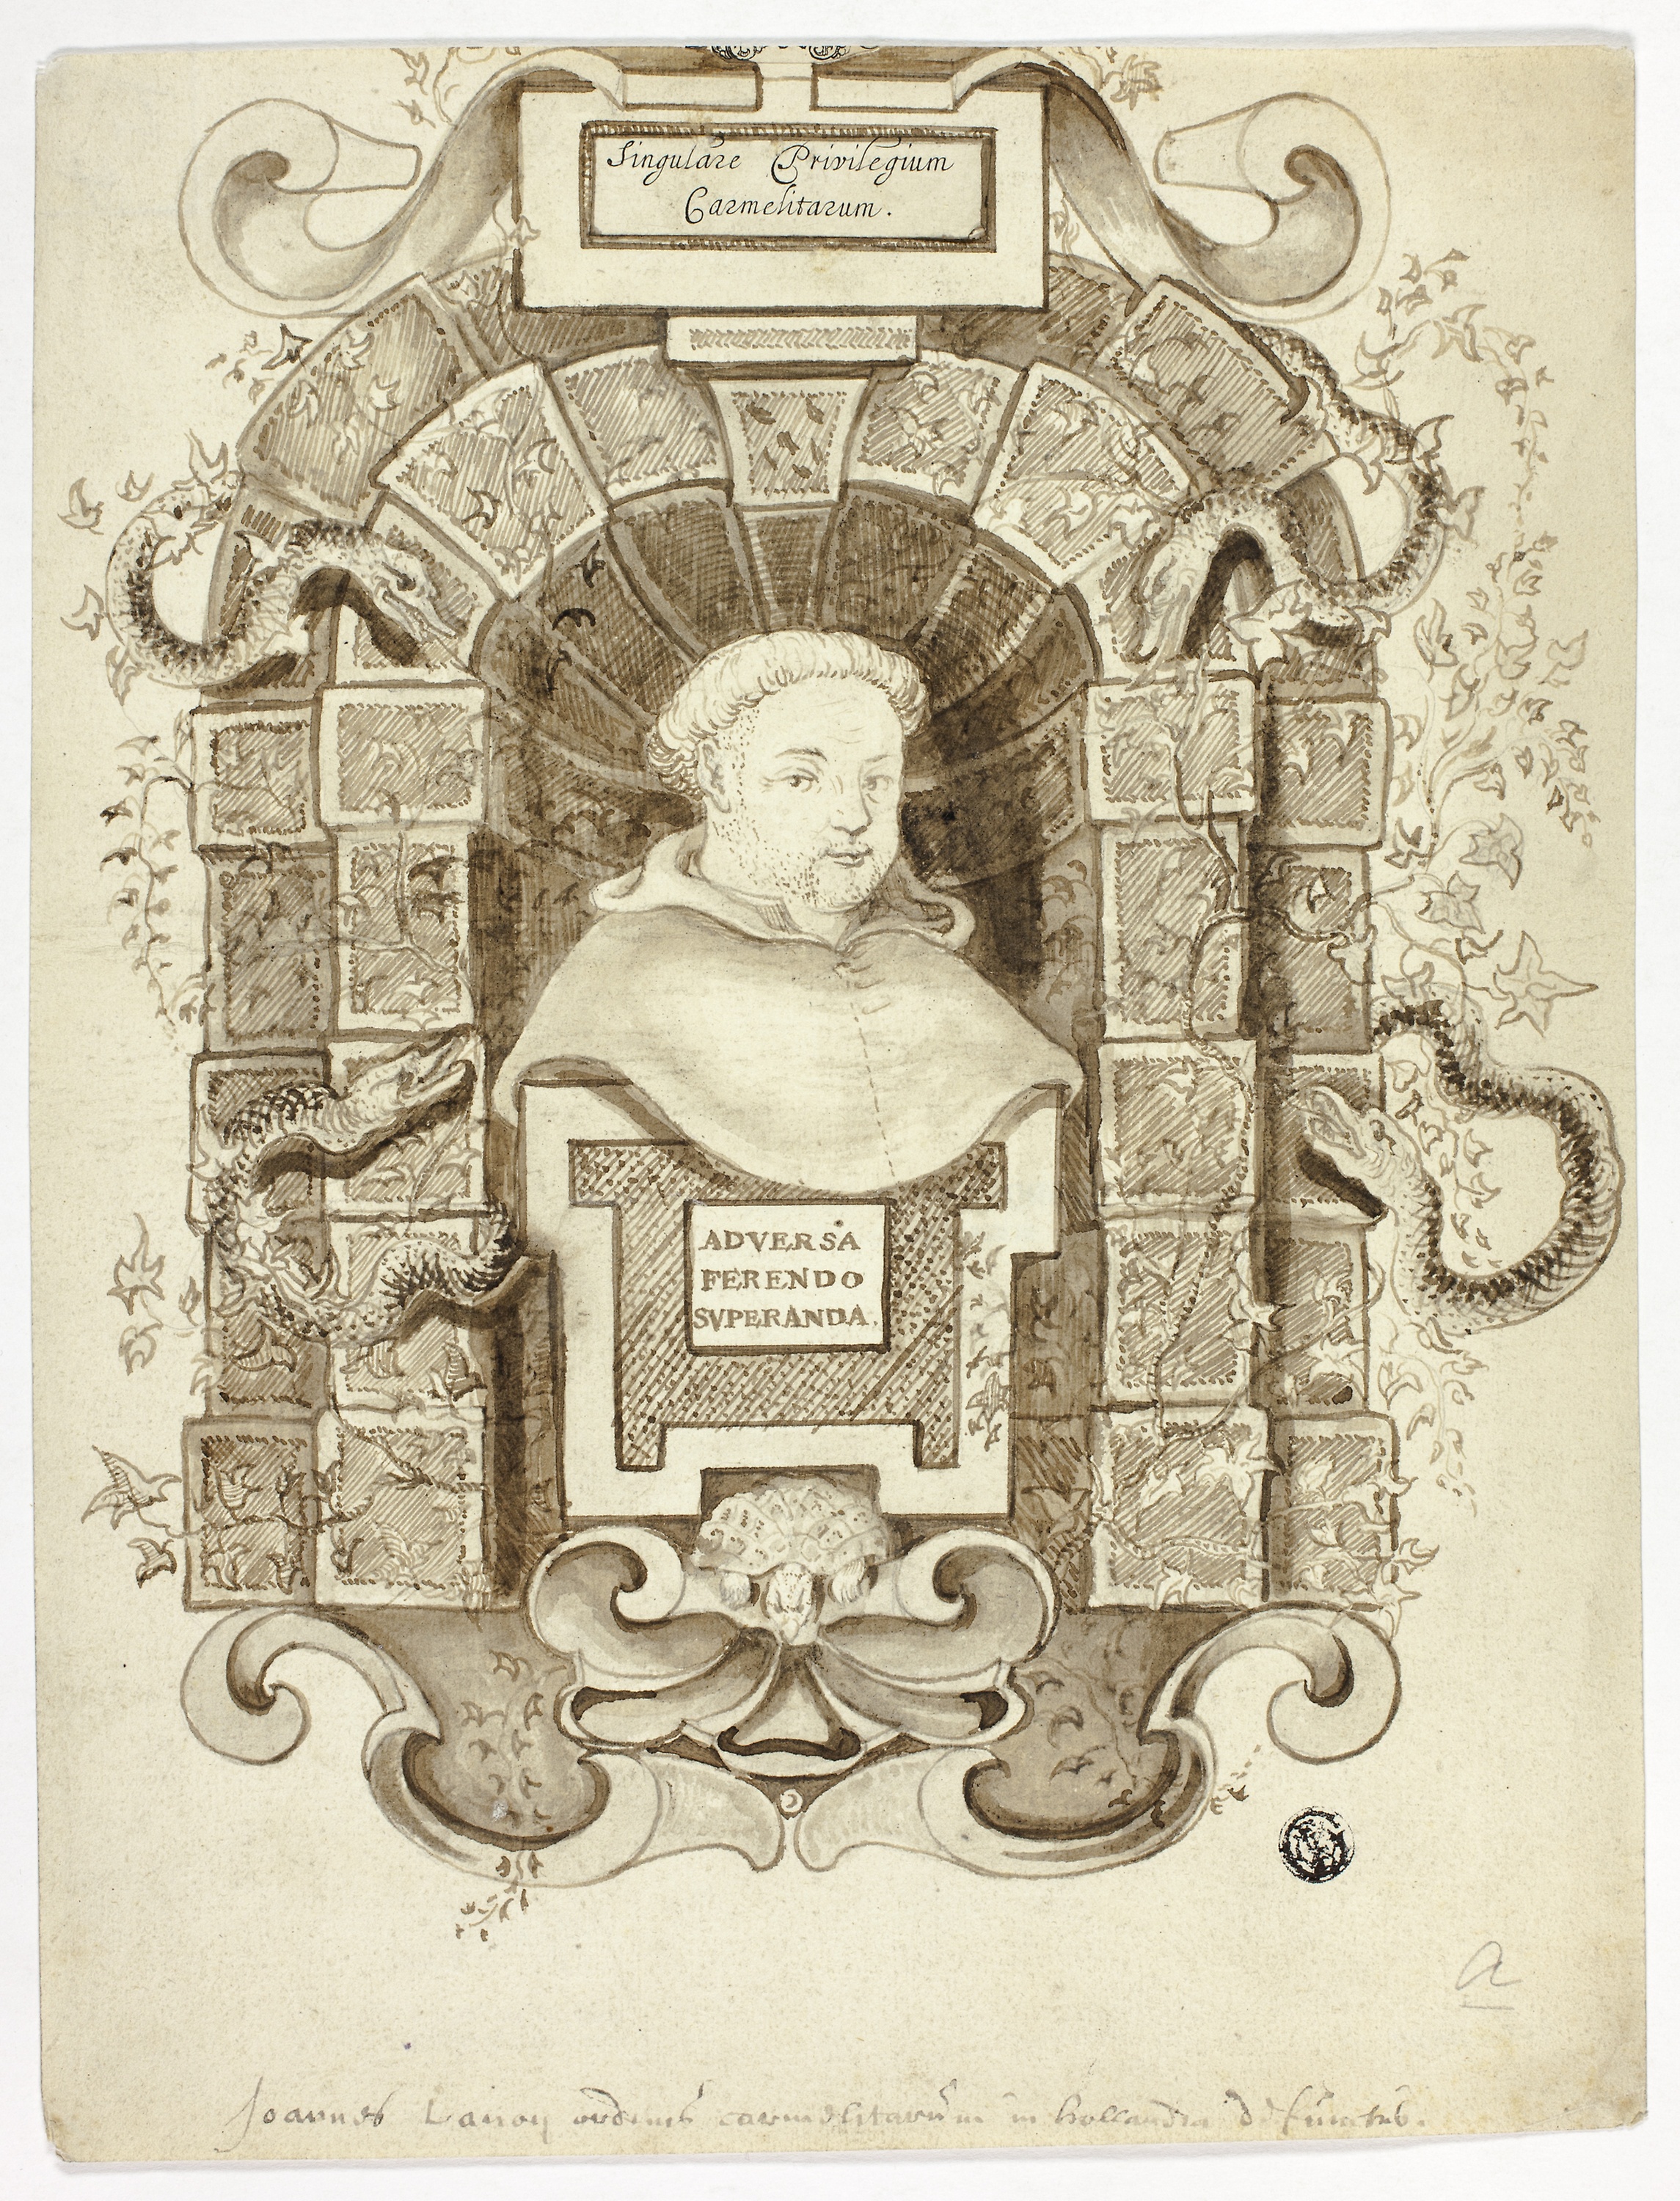 Singulare Privilegium
Carmelitarum.
ADVERSA
FERENDO
SVPERANDA.
a
Joannes Lanoy ordinis carmelitarum in hollandia defunctus.